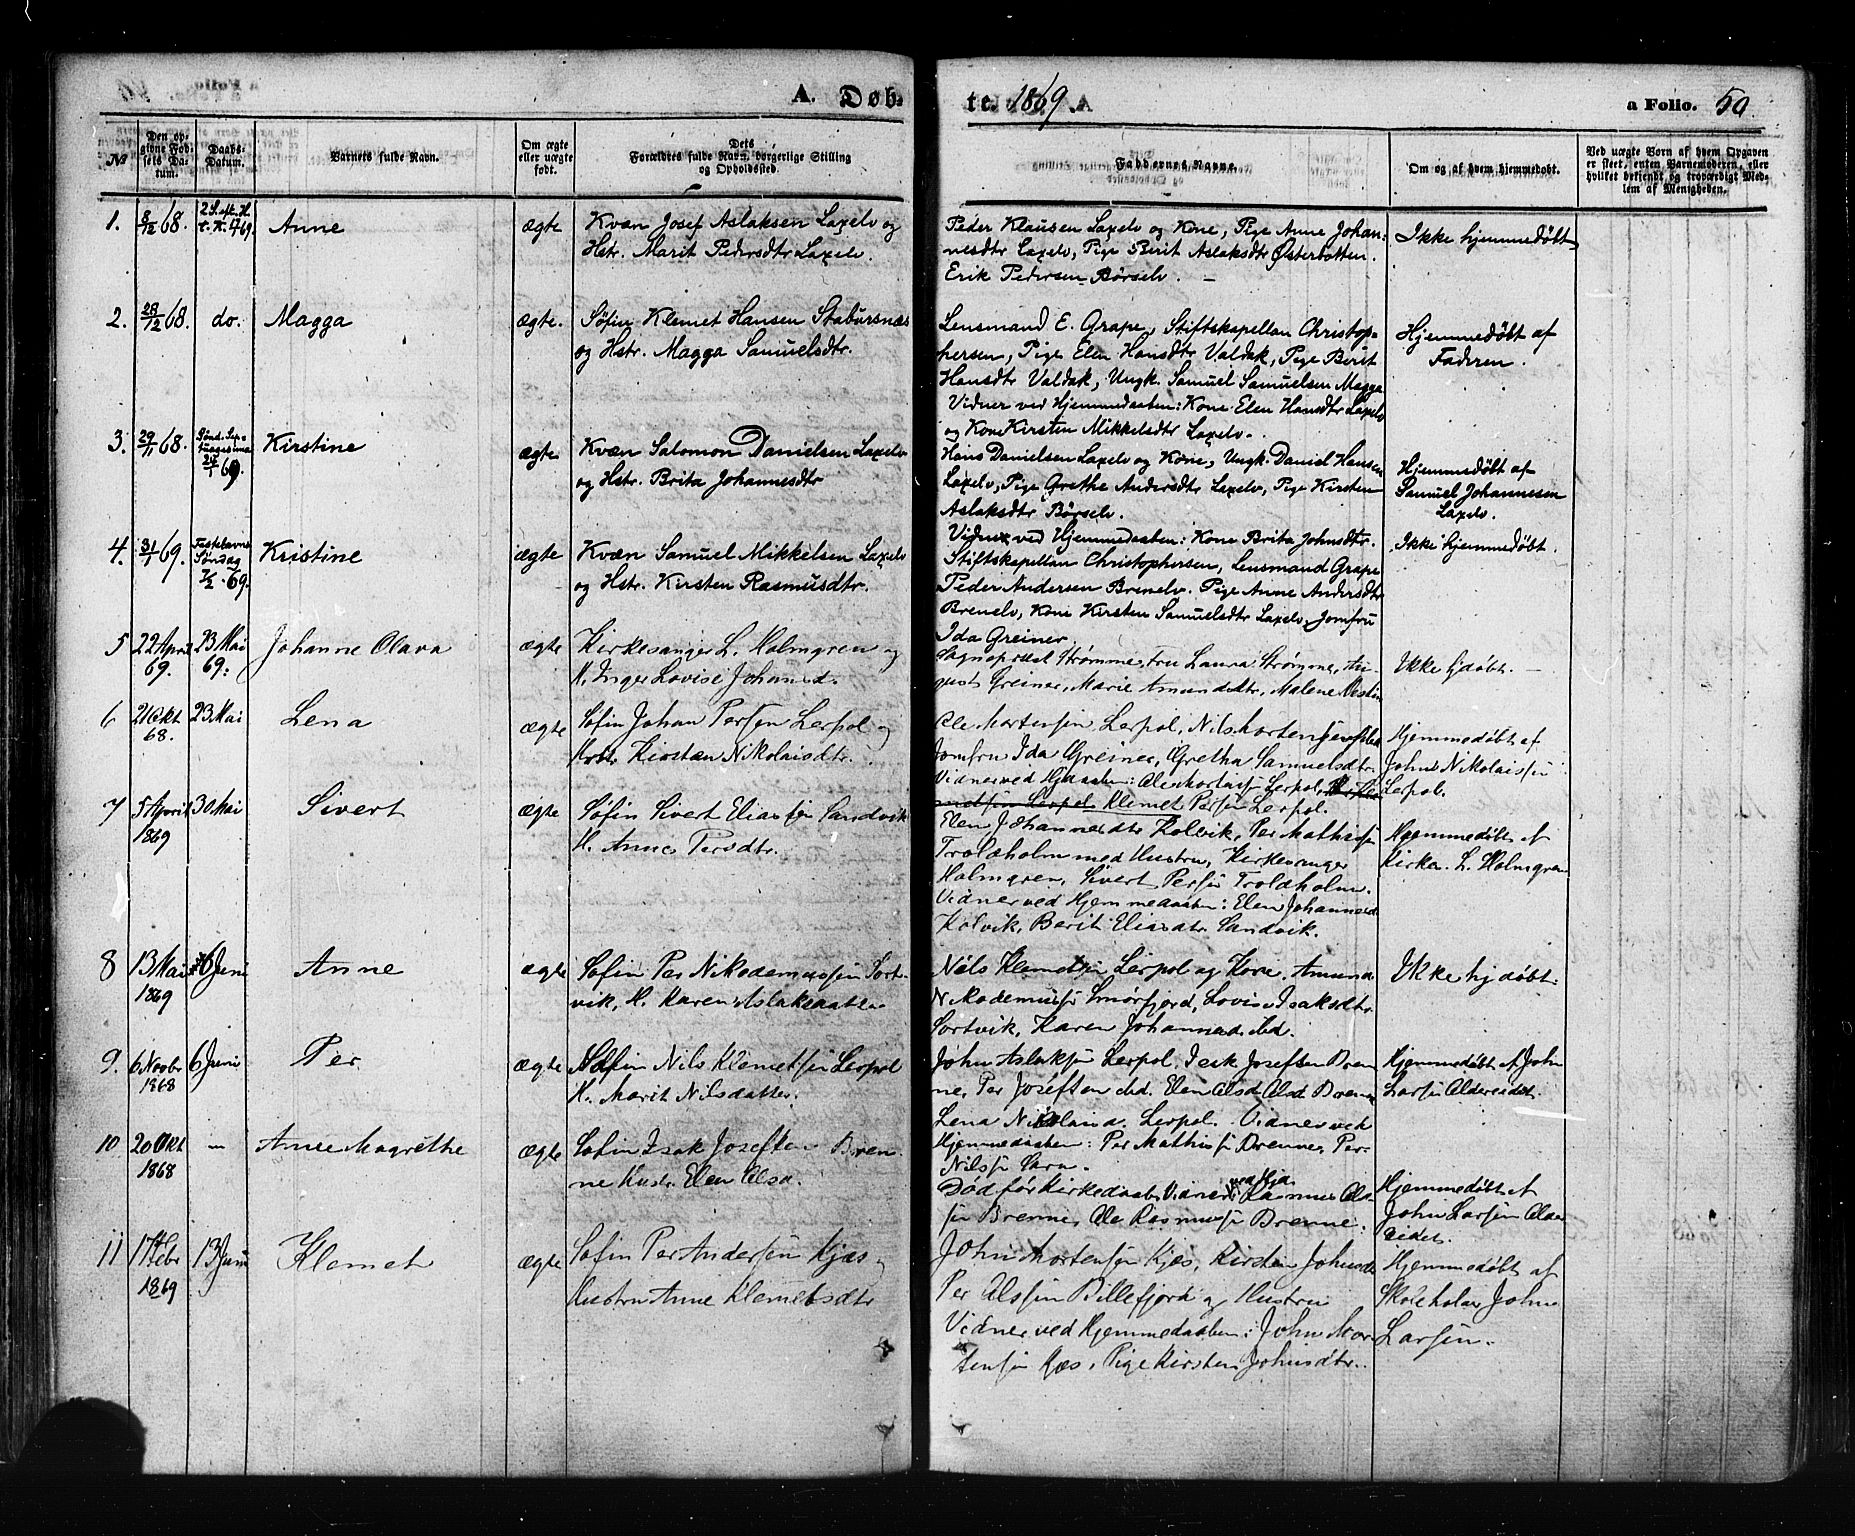 A. Døb-
te. 1869 A
a Folio. 50.
№
Den op-
givne Fød-
sels Da-
tum.
Daabs-
Datum.
Barnets fulde Navn.
Om ægte
eller uægte
født.
Dets
Forældres fulde Navn, borgerlige Stilling
og Opholdssted.
Faddernes Navne.
Om og af hvem hjemmedøbt.
Ved uægte Børn af hvem Opgaven
er skeet, enten Barnemoderen, eller
hvilket bekjendt og troværdigt Med-
lem af Menigheden.
1. 8/12 68. 2 S. eft. H.
t. K. 69. Anne ægte Kvæn Josef Aslaksen Laxelv og
Hstr. Marit Pedersdtr Laxelv.
Peder Klausen Laxelv og Kone, Pige Anne Johan-
nesdtr Laxelv, Pige Berit Aslaksdtr Østerbotten.
Erik Pedersen Børselv. —
Ikke hjemmedøbt
2. 28/12 68. do. Magga ægte. Søfin Klemet Hansen Stabursnæs
og Hstr. Magga Samuelsdtr.
Lensmand E. Grape, Stiftskapellan Christop-
hersen, Pige Elen Hansdtr Valdak, Pige Berit
Hansdtr Valdak, Ungk. Samuel Samuelsen Magga
Vidner ved Hjemmedaaben: Kone Elen Hansdtr Laxelv
og Kone Kirsten Mikkelsdtr Laxelv.
Hjemmedøbt af
Faderen.
3. 29/11 68. Sønd. Sep-
tuagesima
24/1 69 Kirstine ægte Kvæn Salomon Danielsen Laxelv
og Hstr. Brita Johannesdtr
Hans Danielsen Laxelv og Kone, Ungk. Daniel Hansen
Laxelv, Pige Grethe Andersdtr Laxelv, Pige Kirsten
Aslaksdtr Børselv.
Vidner ved Hjemmedaaben: Kone Brita Johnsdtr.
Hjemmedøbt af
Samuel Johannesen
Laxelv.
4. 31/1 69. Fastelavns
Søndag
7/2 69. Kristine ægte Kvæn Samuel Mikkelsen Laxelv
og Hstr. Kirsten Rasmusdtr.
Stiftskapellan Christophersen, Lensmand Grape
Peder Andersen Brenelv. Pige Anne Andersdtr
Brenelv, Kone Kirsten Samuelsdtr Laxelv, Jomfru
Ida Greiner.
Ikke hjemmedøbt.
5 22 April
69. 23 Mai
69. Johanne Olava ægte Kirkesanger L. Holmgren og
H. Inger Lovise Johansd.
Sognepræst Strømme, Fru Laura Strømme, Au-
gust Greiner, Marie Amundsdtr, Malene
Ikke hjdøbt. —
6 21 Okt
68. 23 Mai Lena ægte Søfin Johan Persen Lerpol og
Kirsten Nikolaisdtr.
Ole Mortensen Lerpol, Nils Mortensen
Jomfru Ida Greiner, Gretha Samuelsdtr.
Vidner ved Hjdaaben: Ole Mortensen Lerpol,
Lerpol Klemet Persen Lerpol.
Hjemmedøbt af
John Nikolaisen
Lerpol.
7 5 April
1869 30 Mai Sivert ægte Søfin Sivert Eliassen Sandvik
H. Anne Persdtr.
Elen Johannesdtr Kolvik, Per Mathisen
Troldholm med Hustru, Kirkesanger
Holmgren, Sivert Persen Troldholm.
Vidner ved Hjemmedaaben: Elen Johannesd
Kolvik, Berit Eliasdtr Sandvik.
Hjemmedøbt af
Kirkes. L. Holmgren
8 13 Mai
1869 6 Juni Anne ægte Søfin Per Nikodemussen Sort-
vik, H. Karen Aslaksdatter
Nils Klemetsen Lerpol og Kone, Amund
Nikodemusen Smørfjord, Lovise Isaksdtr.
Sortvik, Karen Johannesd. ibd.
Ikke hjdøbt.
9. 6 Novbr
1868 6 Juni Per ægte Søfin Nils Klemetsen Lerpol
H. Marit Nilsdatter.
John Aslaksen Lerpol, Isak Josefsen Bren-
ne, Per Josefsen ibd. Elen Olsd Brenne
Lena Nikolaisd. Lerpol. Vidner ved
Hjemmedaaben: Per Mathisen Brenne, Per
Nilsen Sara.
Hjemmedøbt af John
Larsen Oldereidet.
10 20 Okt
1868 — Anne Magrethe ægte Søfin Isak Josefsen Bren-
ne Hustr. Elen Olsd.
Død før Kirkedaab. Vidner ved Hjd. Rasmus Ol-
sen Brenne, Ole Rasmusen Brenne.
Hjemmedøbt af
John Larsen Older-
eidet.
11 17 Febr
1869 13 Juni Klemet ægte Søfin Per Andersen Kjæs og
Hustru Anne Klemetsdtr
John Mortensen Kjæs, Kirsten Johnsd
Per Olssen Billefjord og Hustru
Vidner ved Hjemmedaaben: John Mor-
tensen Kjæs, Pige Kirsten Johnsdtr.
Hjemmedøbt af
Skoleholder John
Larsen.